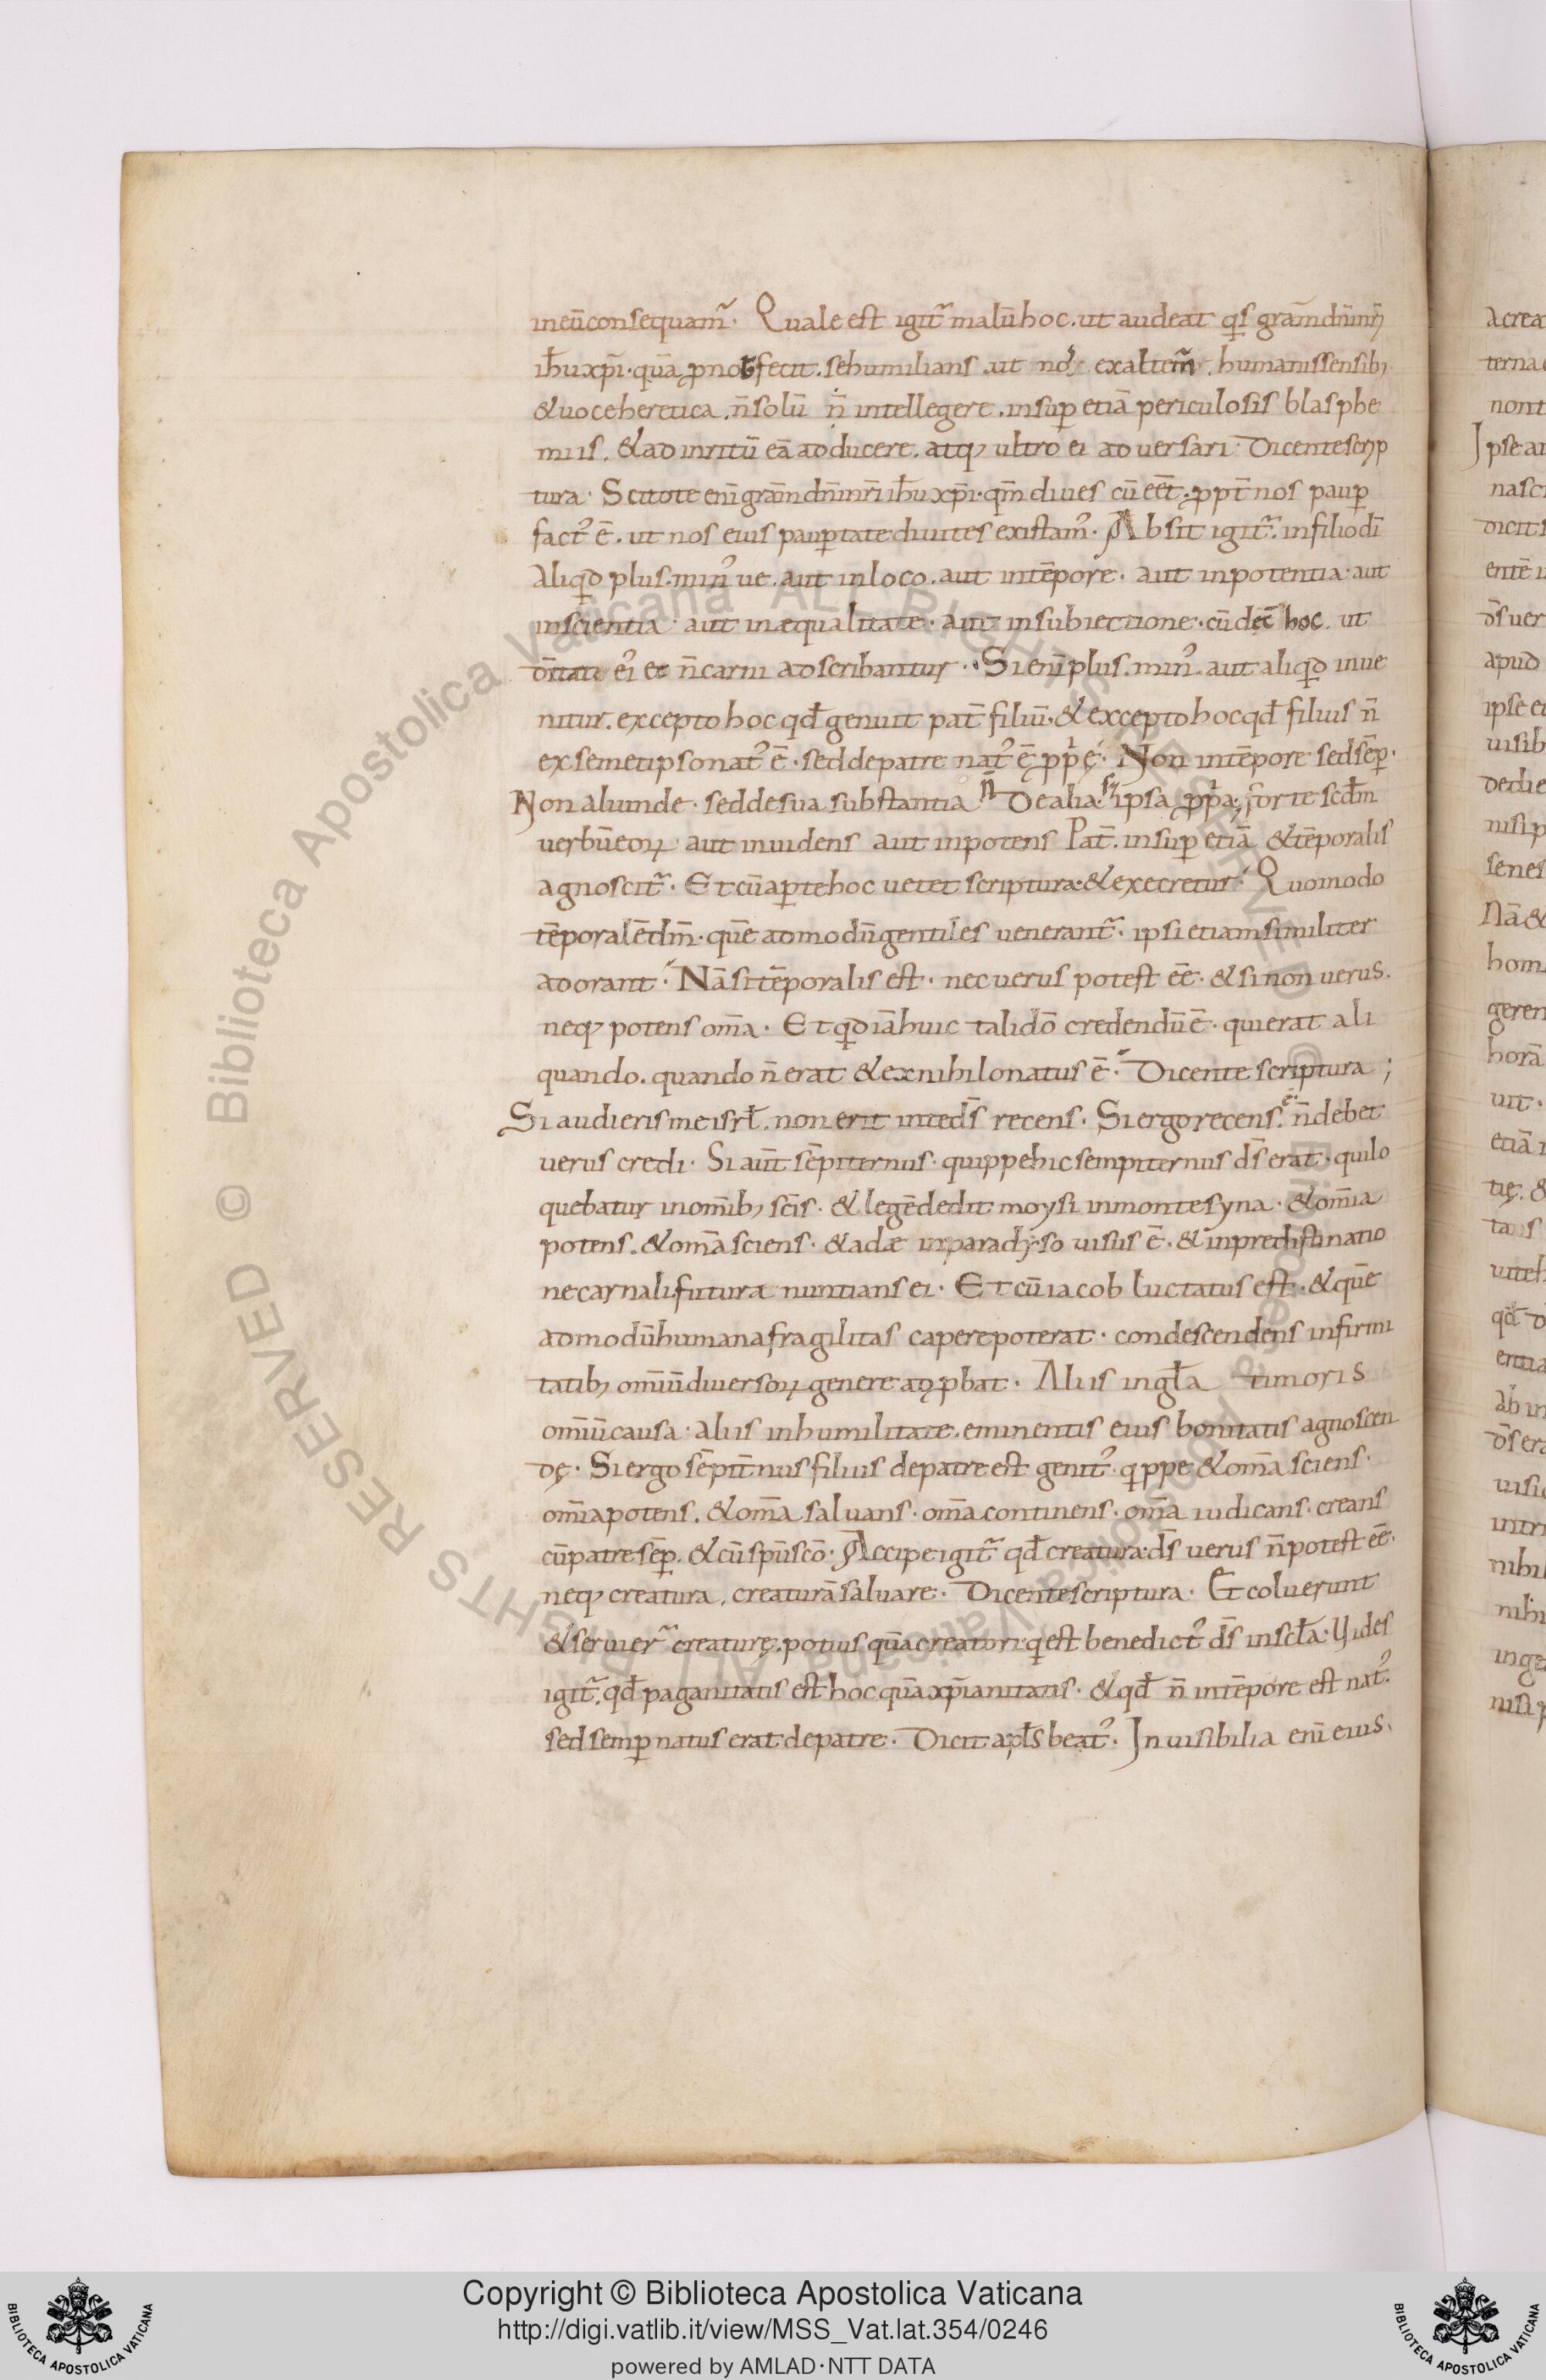 ineūconsequam̃. Quale est igit̃ malūhoc. ut audeat qͥs grām dn̄i nr̄i
ih̄u xp̄i. quā ꝓ nob fecit. se humilians. ut nos exaltem̃. humanis sensib;
& uoce heretica. n̄ solū n̄ intellegere. insuꝑ etiā periculosis blasphe
miis. & ad inritū eā adducere. atq; ultro ei aduersari. Dicente scrip
tura. Scitote enī grām dn̄i nr̄i ih̄u xp̄i. qm̄ diues cū eēt. ꝓpt̄ nos pauꝑ
factꝰ ē. ut nos eius pauꝑtate diuites existamꝰ. Absit igit̃. in filio dī
aliqͥd plus. minꝰ ue. aut in loco. aut in tēpore. aut in potentia. aut
in scientia. aut in æqualitate. aut in subiectione. cū dec̄ hoc. ut
ditati eiꝰ et n̄ carni adscribantur. Si enī plus. minꝰ. aut aliqͥd inue
nitur. excepto hoc qđ genuit pat̄ filiū. & excepto hoc qđ filius n̄
ex semetipso natꝰ ē. sed de patre natꝰ ē ꝓpͥę. Non in tēpore sed sēꝑ.
Non aliunde. sed de sua substantia n̄ De alia. sꝫ ipsa ꝓpͥa; forte scđm
uerbū eoꝝ. aut inuidens aut inpotens Pat̄. insuꝑ etiā & tēporalis
agnoscit̃. Et cū aꝑte hoc uetet scriptura. & execretur. Quomodo
tēporalē dm̄. quē admodū gentiles uenerant̃. ipsi etiam similiter
adorant. Nā si tēporalis est. nec uerus potest eē. & si non uerus.
neq; potens om̄a. Et qͥd iā huic tali dō credendū ē. qui erat ali
quando. quando n̄ erat & ex nihilo natus ē. Dicente scriptura;
Si audieris me isrł. non erit in te ds̄ recens. Si ergo recens. ē. n̄ debet
uerus credi. Si aūt sēpiternus. quippe hic sempiternus ds̄ erat. qui lo
quebatur in om̄ib; scīs. & legē dedit moysi in monte syna. & om̄ia
potens. & om̄a sciens. & adæ in paradyso uisus ē. & in predistinatio
ne carnali futura nuntians ei. Et cū iacob luctatus est. & quē
admodū humana fragilitas capere poterat. condescendens infirmi
tatib; om̄iū diuersoꝝ genere adꝓbat. Aliis in gła timoris
om̄iū causa. aliis in humilitate. eminentis eius bonitatis agnoscen
dę. Si ergo sēpit̄nus filius de patre est genitꝰ. qͥppe & om̄a sciens.
om̄ia potens. & om̄a saluans. om̄a continens. om̄a iudicans. creans
cū patre sēꝑ. & cū spū scō. Accipe igit̃ qđ creatura. ds̄ uerus n̄ potest eē.
neq; creatura, creaturā saluare. Dicente scriptura. Et coluerunt
& seruier̃ creaturę. potius quā creatori. qͥ est benedictꝰ ds̄ in scła. Vides
igit̃. qđ paganitatis est hoc quā xp̄ianitatis. & qđ n̄ in tēpore est natꝰ.
sed semꝑ natus erat de patre. Dicit apłs beatꝰ. Inuisibilia enī eius.
Copyright © Biblioteca Apostolica Vaticana
http://digi.vatlib.it/view/MSS_Vat.lat.354/0246
powered by AMLAD·NTT DATA
BIBLIOTECA APOSTOLICA VATICANA
BIBLIOTECA APOSTOLICA VATICANA
© Biblioteca Apostolica Vaticana ALL RIGHTS RESERVED
© Biblioteca Apostolica Vaticana ALL RIGHTS RESERVED